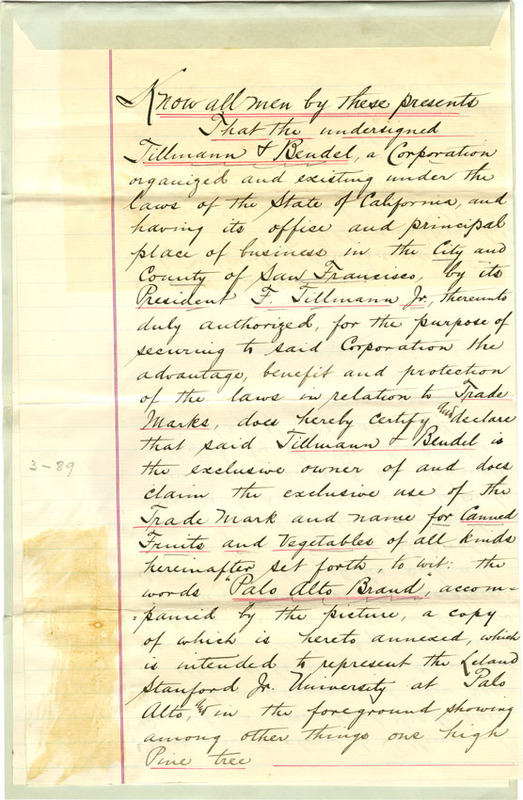 Know all men by these presents
That the undersigned
Tillmann & Bendel, a Corporation
organized and existing under the
laws of the State of California, and
having its office and principal
place of business in the City and
County of San Francisco, by its
President F. Tillmann Jr, thereunto
duly authorized, for the purpose of
securing to said Corporation the
advantage, benefit and protection
of the laws in relation to Trade
Marks, does hereby certify and declare
that said Tillmann & Bendel is
the exclusive owner of and does
3-89
claim the exclusive use of the
Trade Mark and name for Canned
Fruits and Vegetables of all kinds
hereinafter set forth, to wit: the
words "Palo Alto Brand", accom-
-panied by the picture, a copy
of which is hereto annexed, which
is intended to represent the Leland
Stanford Jr. University at Palo
Alto, & in the foreground showing
among other things one high
Pine tree